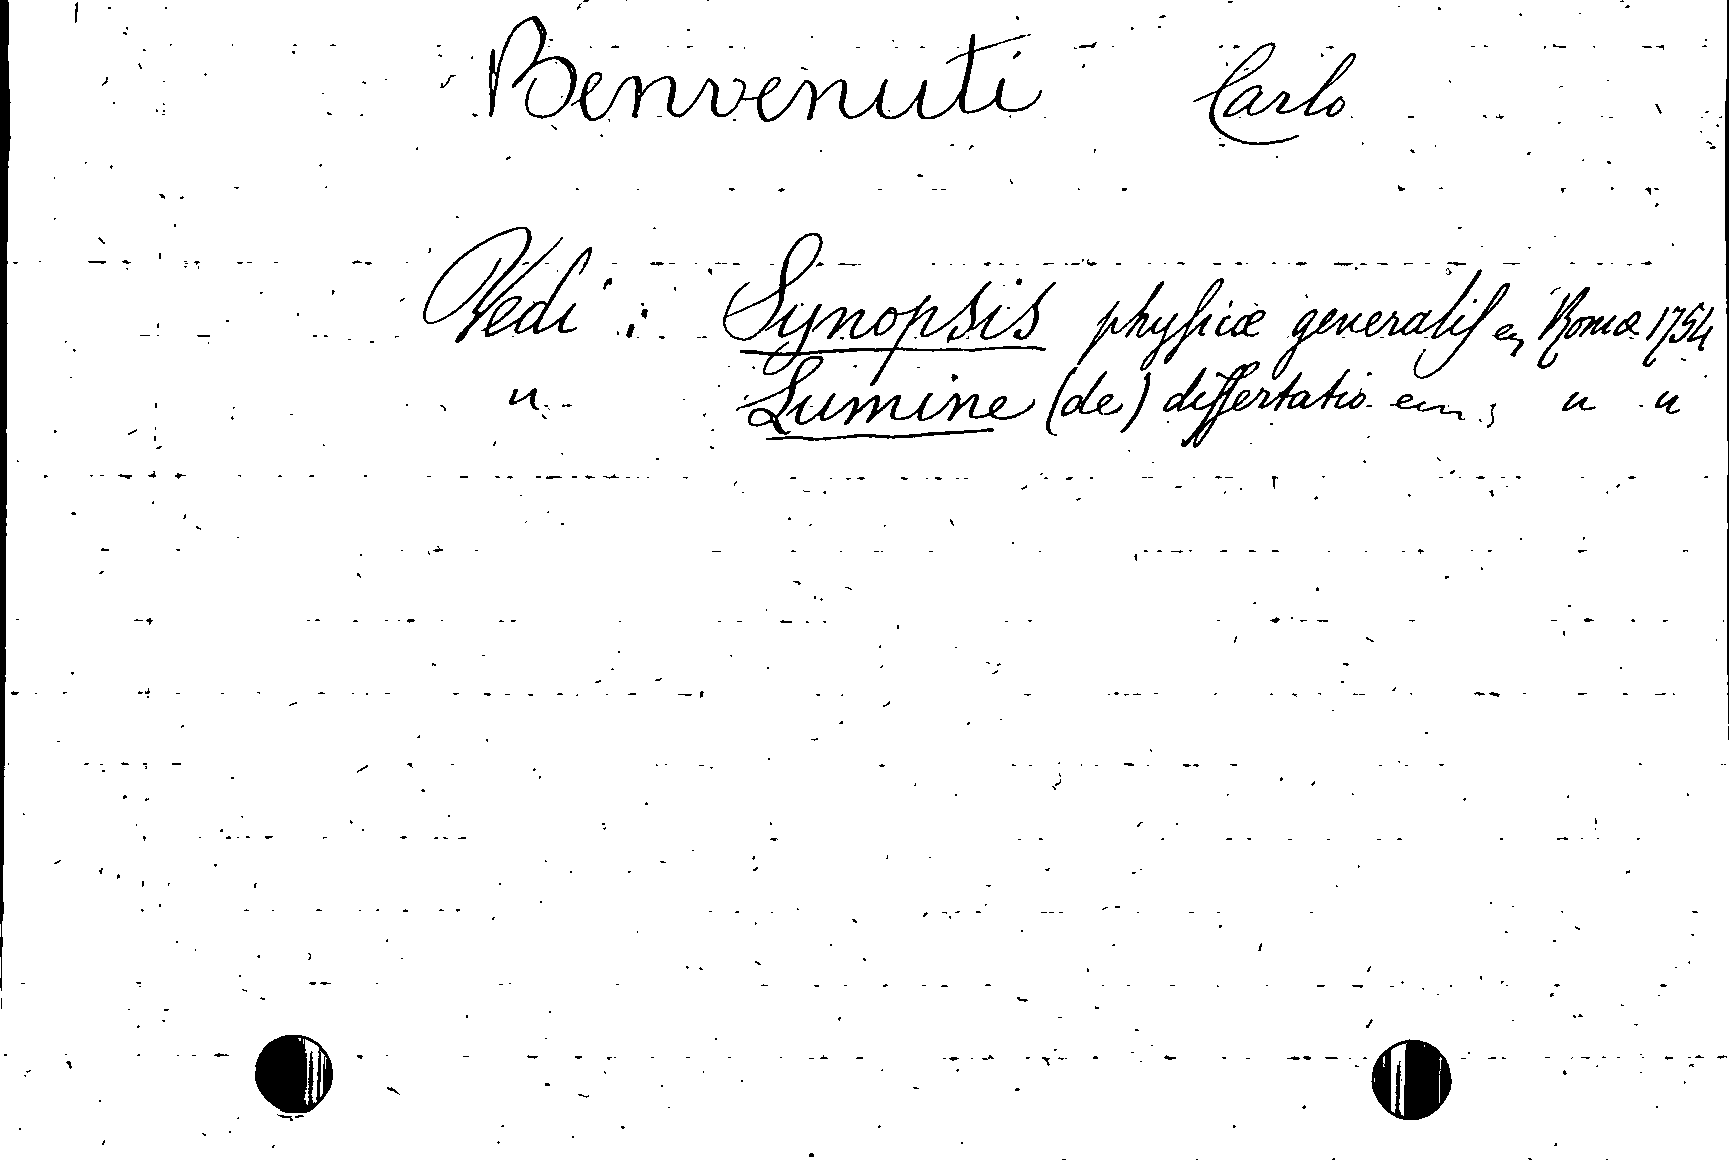 Benvenuti Carlo
Vedi : Synopsis phyſicæ generaliſ ec, Romæ 1754
" Lumine (de) diſſertatio ecc. ; " "